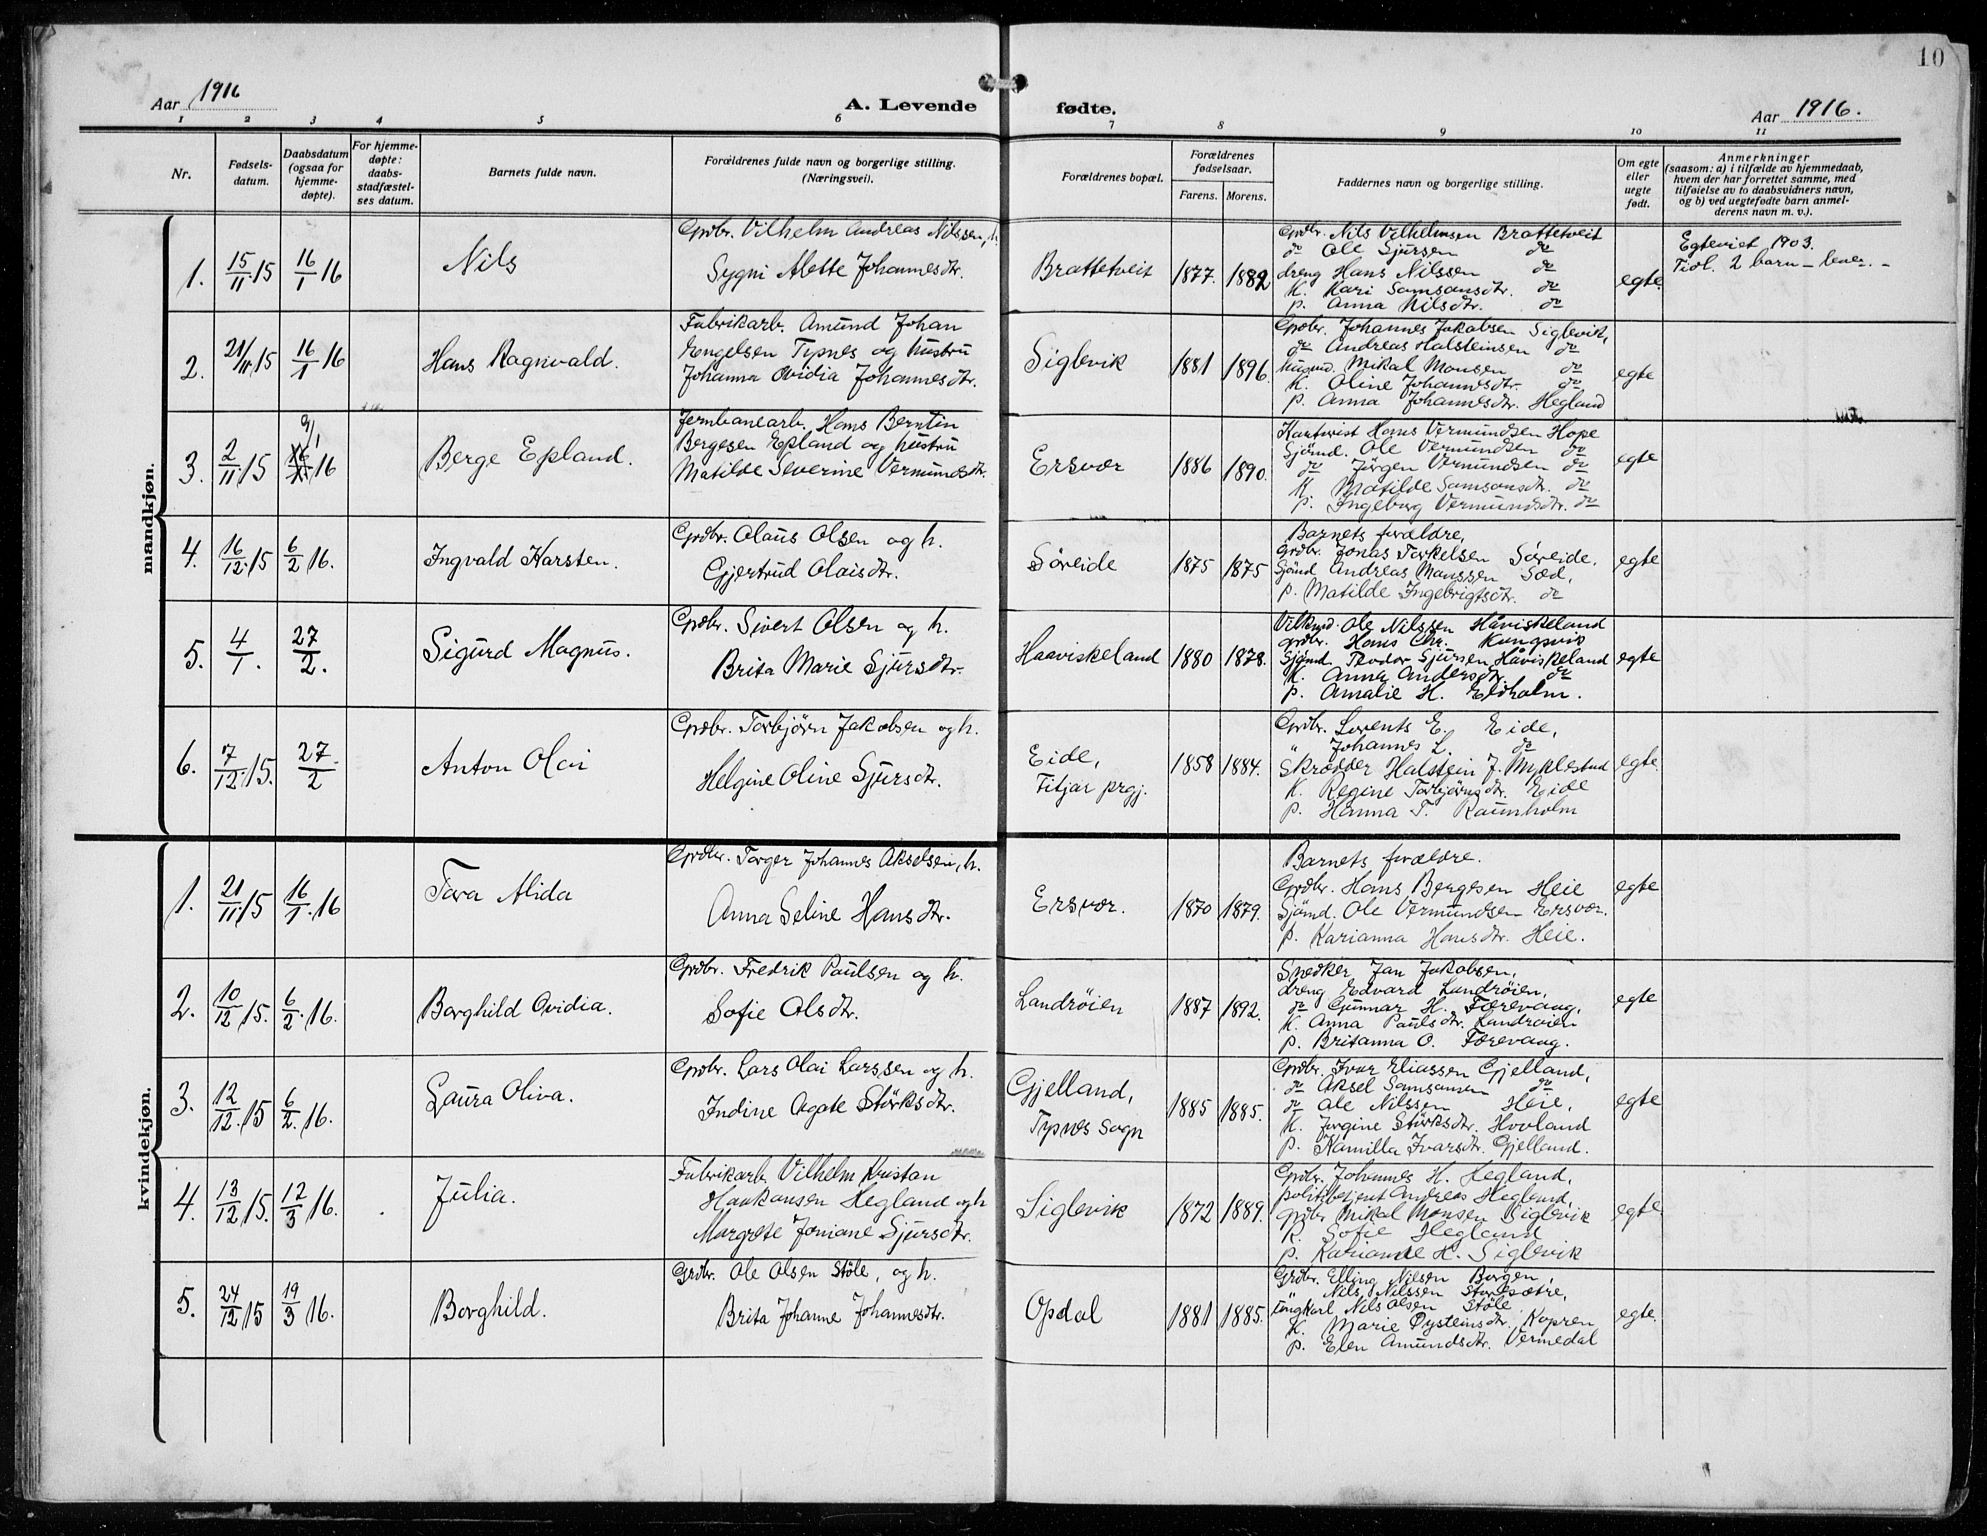 10
Aar 1916
A. Levende fødte.
Aar 1916.
1 2 3 4 5 6 7 8 9 10 11
Nr.
Fødsels-
datum.
Daabsdatum
(ogsaa for
hjemme-
døpte).
For hjemme-
døpte:
daabs-
stadfæstel-
ses datum.
Barnets fulde navn.
Forældrenes fulde navn og borgerlige stilling.
(Næringsvei).
Forældrenes bopæl.
Forældrenes
fødselsaar.
Farens. Morens.
Faddernes navn og borgerlige stilling.
Om egte
eller
uegte
født.
Anmerkninger
(saasom: a) i tilfælde av hjemmedaab,
hvem der har forrettet samme, med
tilføielse av to daabsvidners navn,
og b) ved uegtefødte barn anmel-
derens navn m. v.).
mandkjøn.
1. 15/11 15 16/1 16 Nils
Grdbr. Vilhelm Andreas Nilssen, h.
Sygni Alette Johannesdtr.
Brattetveit 1877. 1882
Grdbr. Nils Vilhelmsen Brattetveit
do Ole Sjursen do
dreng Hans Nilssen do
K. Kari Samsonsdtr. do
p. Anna Nilsdtr. do
egte.
Egteviet 1903.
Tidl. 2 barn -
2. 21/11 15 16/1 16 Hans Ragnvald.
Fabrikarb. Amund Johan
Engelsen Tysnes og hustru
Johanna Ovidia Johannesdtr.
Siglevik 1881 1896.
Grdbr. Johannes Jakobsen Siglevik,
do Andreas Halsteinsen do
husmd. Mikal Monsen do
K. Oline Johannesdtr. do
p. Anna Johannesdtr. Hegland
egte
3. 2/11 15 9/1 16 Berge Epland.
Jernbanearb. Hans Berntin
Bergesen Epland og hustru
Matilde Severine Vermundsdtr.
Ersvær 1886 1890.
Hans Vermundsen Hope
Sjömd. Ole Vermundsen do
do Jörgen Vermundsen do
K. Matilde Samsonsdtr. do
p. Ingeborg Vermundsdtr. do
egte
4. 16/12 15 6/2 16. Ingvald Karsten.
Grdbr. Olaus Olsen og h.
Gjertrud Olaisdtr.
Söreide 1875 1875
Barnets forældre,
grdbr. Jonas Torkelsen Söreide.
Sjömd Andreas Monssen Sæd,
p. Matilde Ingebrigtsdtr. do
egte
5. 4/1. 27/2. Sigurd Magnus.
Grdbr. Sivert Olsen og h.
Brita Marie Sjursdtr.
Haaviskeland 1880 1878.
Ole Nilssen Håviskeland
grdbr. Hans Chr. Kongsvik
Sjömd. Teodor Sjursen Håviskeland
K. Anna Andersdtr. do
p. Amalie H. Eidholm.
egte
6. 7/12 15. 27/2 Anton Olai
Grdbr. Torbjörn Jakobsen og h.
Helgine Oline Sjursdtr.
Eide,
Fitjar prgj.
1858 1884.
Grdbr. Lorents E. Eide,
" Johannes L. do
Skrædder Halstein J. Myklestad
K. Regine Torbjörnsdtr. Eide
p. Hanna T. Raunholm
egte.
kvindekjøn.
1. 21/11 15 16/1 16 Tora Alida
Grdbr. Torger Johannes Akselsen, h.
Anna Seline Hansdtr.
Ersvær. 1870 1879.
Barnets forældre.
Grdbr. Hans Bergesen Heie
Sjömd. Ole Vermundsen Ersvær.
p. Karianna Hansdtr. Heie.
egte
2. 10/12 15. 6/2 16. Borghild Ovidia.
Grdbr. Fredrik Paulsen og h.
Sofie Olsdtr.
Landröien 1887 1892.
Snedker Jan Jakobsen,
dreng Edvard Landröien,
do Gunnar H. Færevaag,
K. Anna Paulsdtr. Landröien
p. Britanna O. Færevaag.
egte
3. 12/12 15 6/2 16. Laura Oliva.
Grdbr. Lars Olai Larssen og h.
Indine Agate Störksdtr.
Gjelland,
Tysnes sogn
1885 1885.
Grdbr. Ivar Eliassen Gjelland,
do Aksel Samsonsen do
do Ole Nilssen Heie,
K. Jorgine Störksdtr. Hovland
p. Kamilla Ivarsdtr. Gjelland.
egte
4. 13/12 15. 12/3 16. Julia.
Fabrikarb. Vilhelm Kristan
Haakonsen Hegland og h
Margrete Joniane Sjursdtr.
Siglevik 1872 1889.
Grdbr. Johannes H. Hegland,
politibetjent Andreas Hegland,
grdbr Mikal Monsen Siglevik
K. Sofie Hegland
p. Karianne H. Siglevik
egte
5. 24/12 15 19/3 16. Borghild.
Grdbr. Ole Olsen Stöle, og h.
Brita Johanne Johannesdtr.
Opdal 1881 1885.
Grdbr. Elling Nilsen Borgen,
" Nils Nilssen Storesætre,
ungkarl Nils Olsen Stöle
K. Marie Öysteinsdtr. Kopren
p. Elen Amundsdtr. Vermedal
egte.